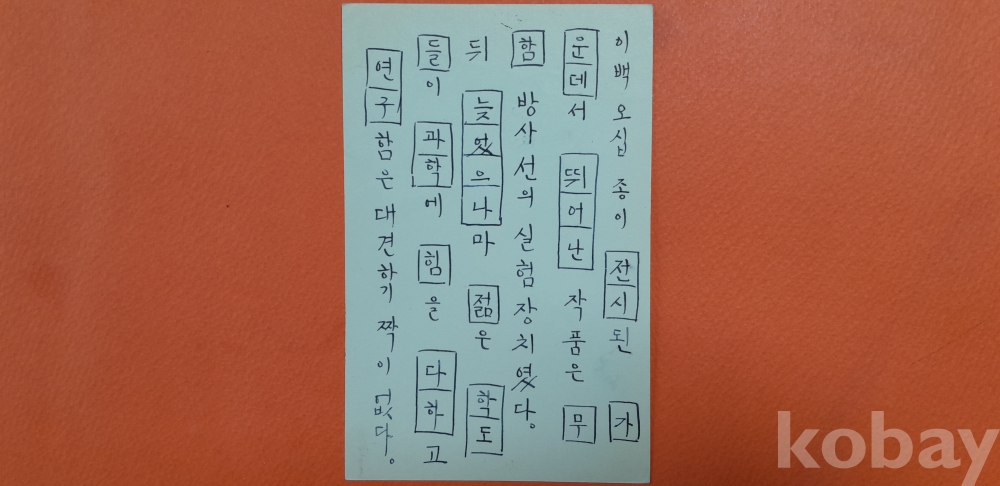 이백 오십 종이 전시된 가
운데서 뛰어난 작품은 무
함 방사선의 실험 장치였다。
뒤 늦었으나마 젊은 학도
들이 과학에 힘을 다하고
연구함은 대견하기 짝이 없다。
kobay